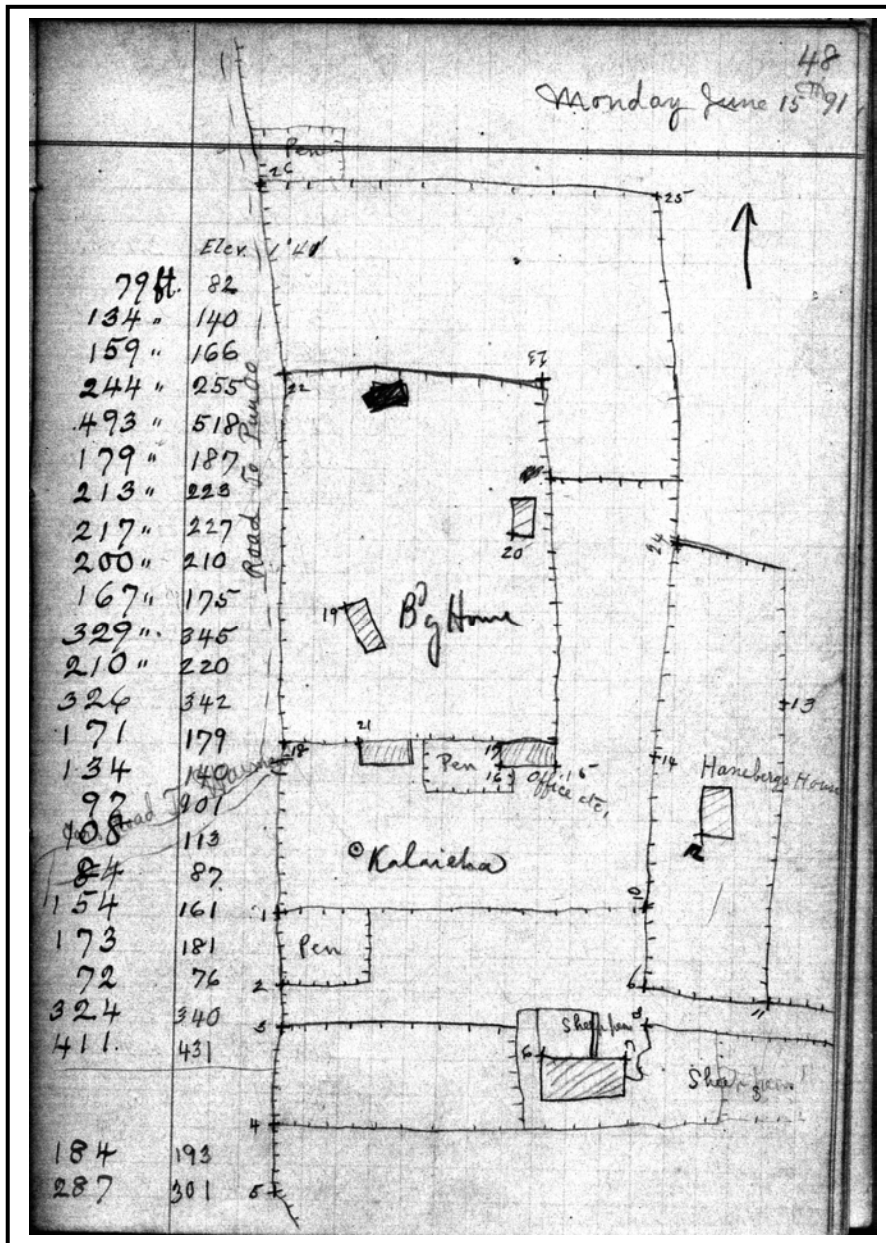 48
Monday June 15th 91
Pen
26
25
Elev. 1°40'
79 ft. 82
134 " 140
159 " 166
244 " 255
493 " 518
179 " 187
213 " 223
217 " 227
200 " 210
167 " 175
329 " 345
210 " 220
326 342
171 179
134 140
97 101
108 113
84 87
154 161
173 181
72 76
324 340
411. 431
184 193
287 301
Road To
22
23
24
20
19
Big House
13
21
18
Pen
17
16
15
Office etc.
14
Hanebergs House
12
Road To
Kalaieha
1
10
Pen
2
6
11
3
Sheep pen
8
6
7
Sheep pen
4
5